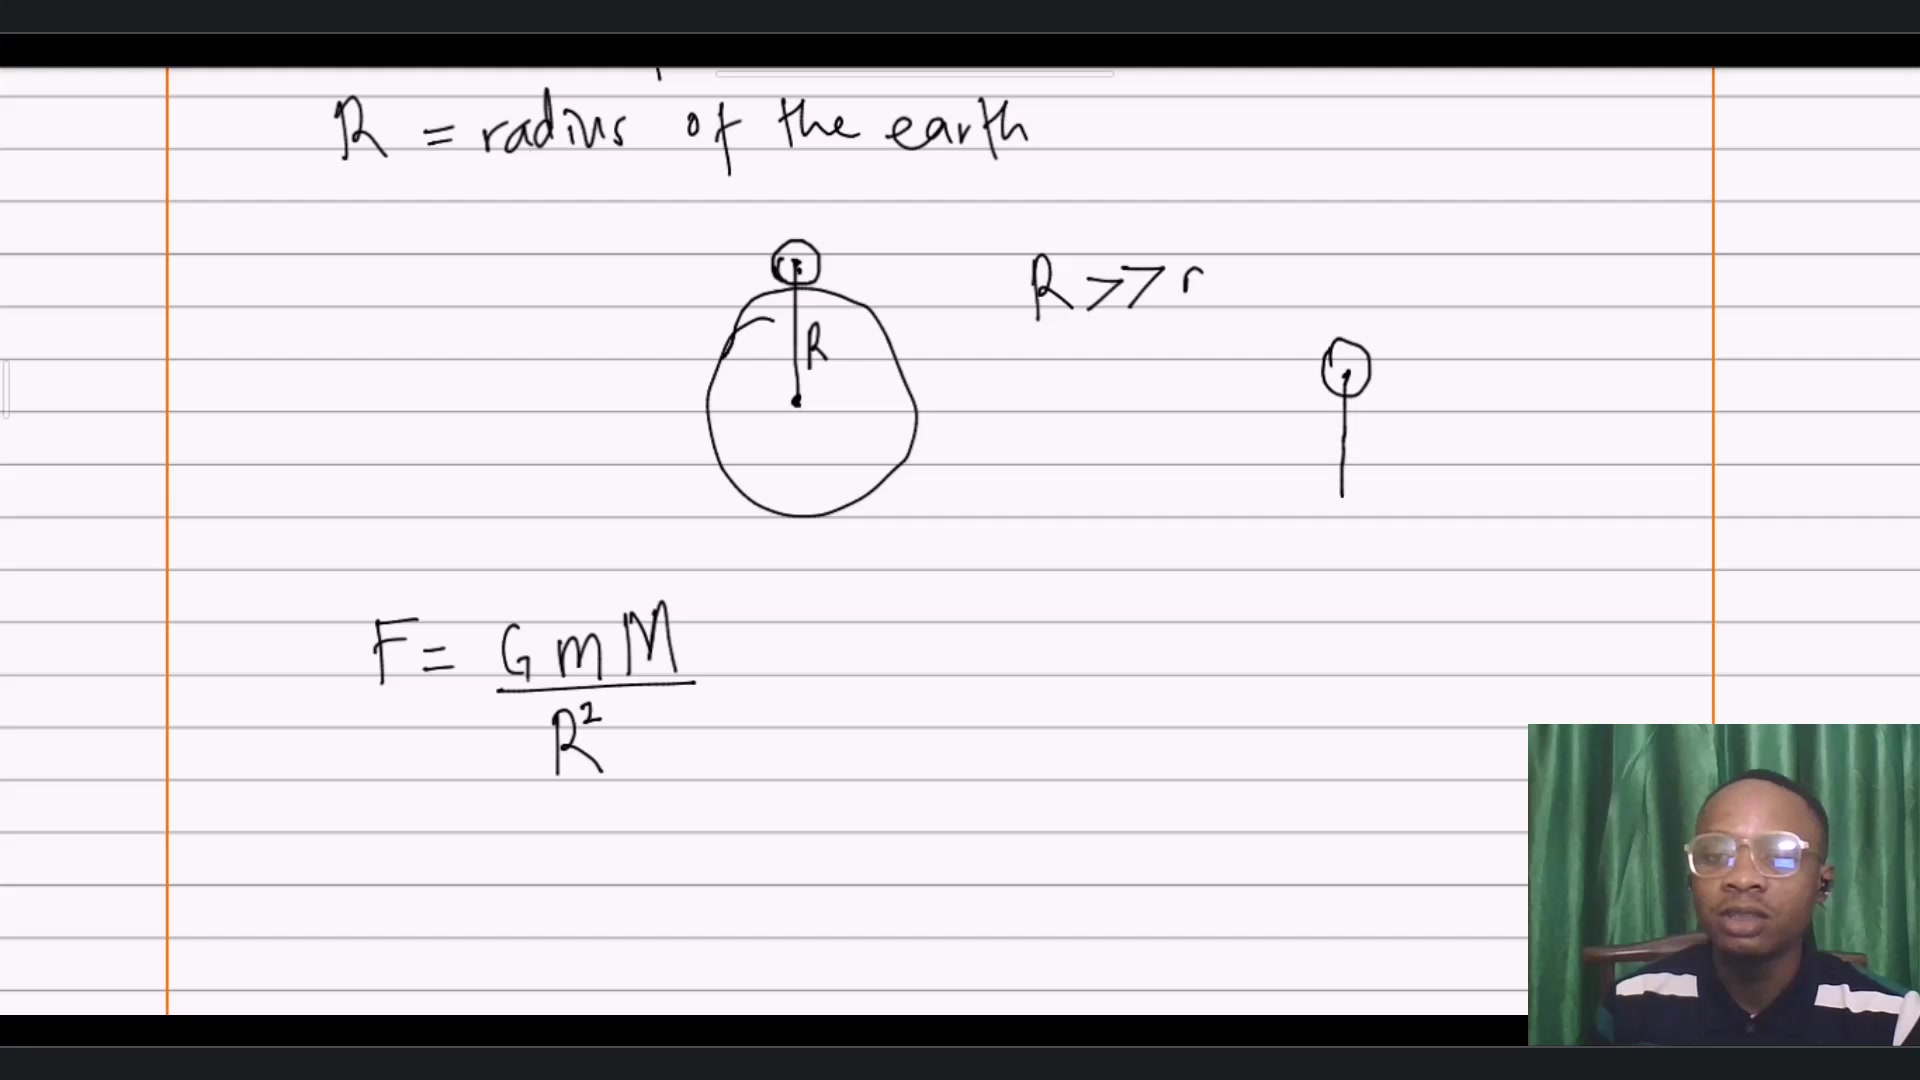 R = radius of the earth
R >> r
R
F = G m M
R²